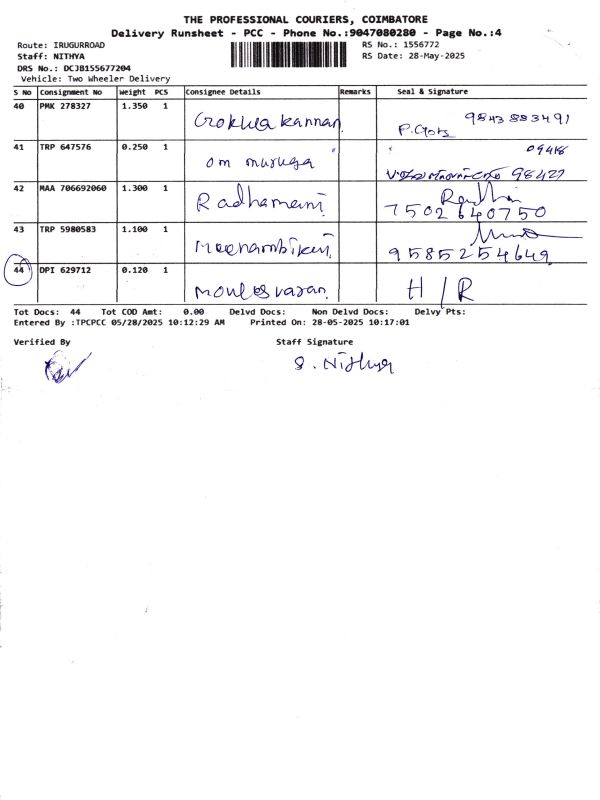 THE PROFESSIONAL COURIERS, COIMBATORE
Delivery Runsheet - PCC - Phone No.:9047080280 - Page No.:4
Route: IRUGURROAD
RS No.: 1556772
Staff: NITHYA
RS Date: 28-May-2025
DRS No.: DCJB155677204
Vehicle: Two Wheeler Delivery
S No Consignment No Weight PCS Consignee Details Remarks Seal & Signature
40 PMK 278327 1.350 1 Gokula kannan 9843883491
41 TRP 647576 0.250 1 om muruga 09418
98427
42 MAA 706692060 1.300 1 Radhamani 7502640750
43 TRP 5980583 1.100 1 Meenambikai 9585254649
44 DPI 629712 0.120 1 Mouleswaran H/R
Tot Docs: 44 Tot COD Amt: 0.00 Delvd Docs: Non Delvd Docs: Delvy Pts:
Entered By :TPCPCC 05/28/2025 10:12:29 AM Printed On: 28-05-2025 10:17:01
Verified By Staff Signature
S. Nithya